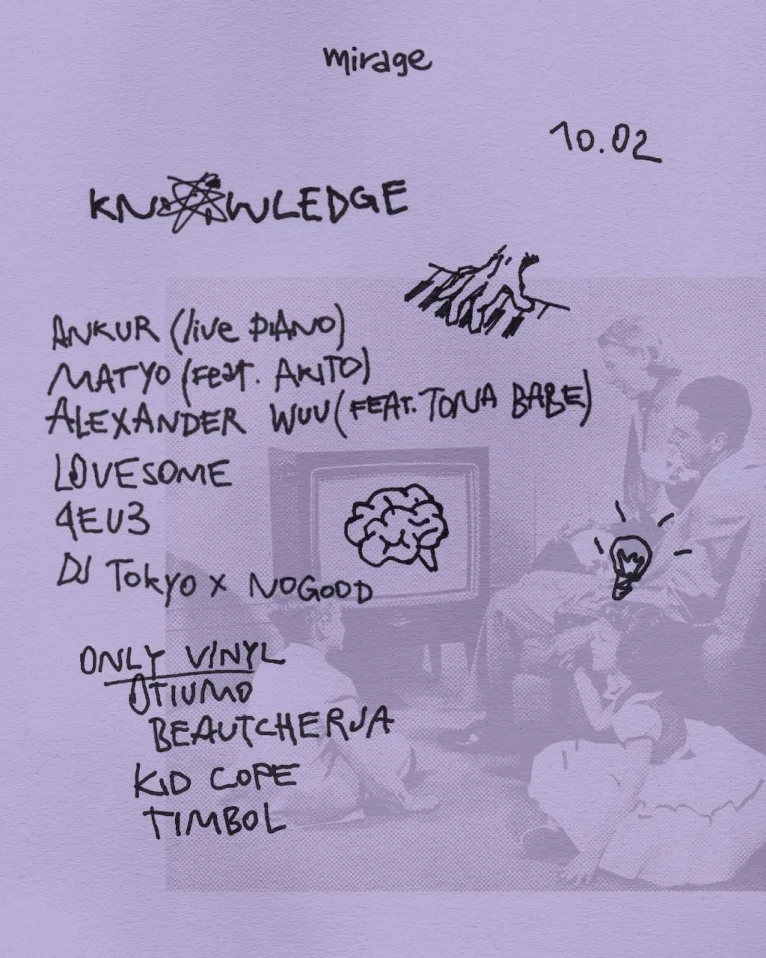 mirage
10.02
KNOWLEDGE
ANKUR (live PIANO)
MATYO (FEAT. AKITO)
ALEXANDER WUU (FEAT. TONA BABE)
LOVESOME
4EU3
DJ Tokyo x NOGOOD
ONLY VINYL
OTIUMO
BEAUTCHERJA
KID COPE
TIMBOL